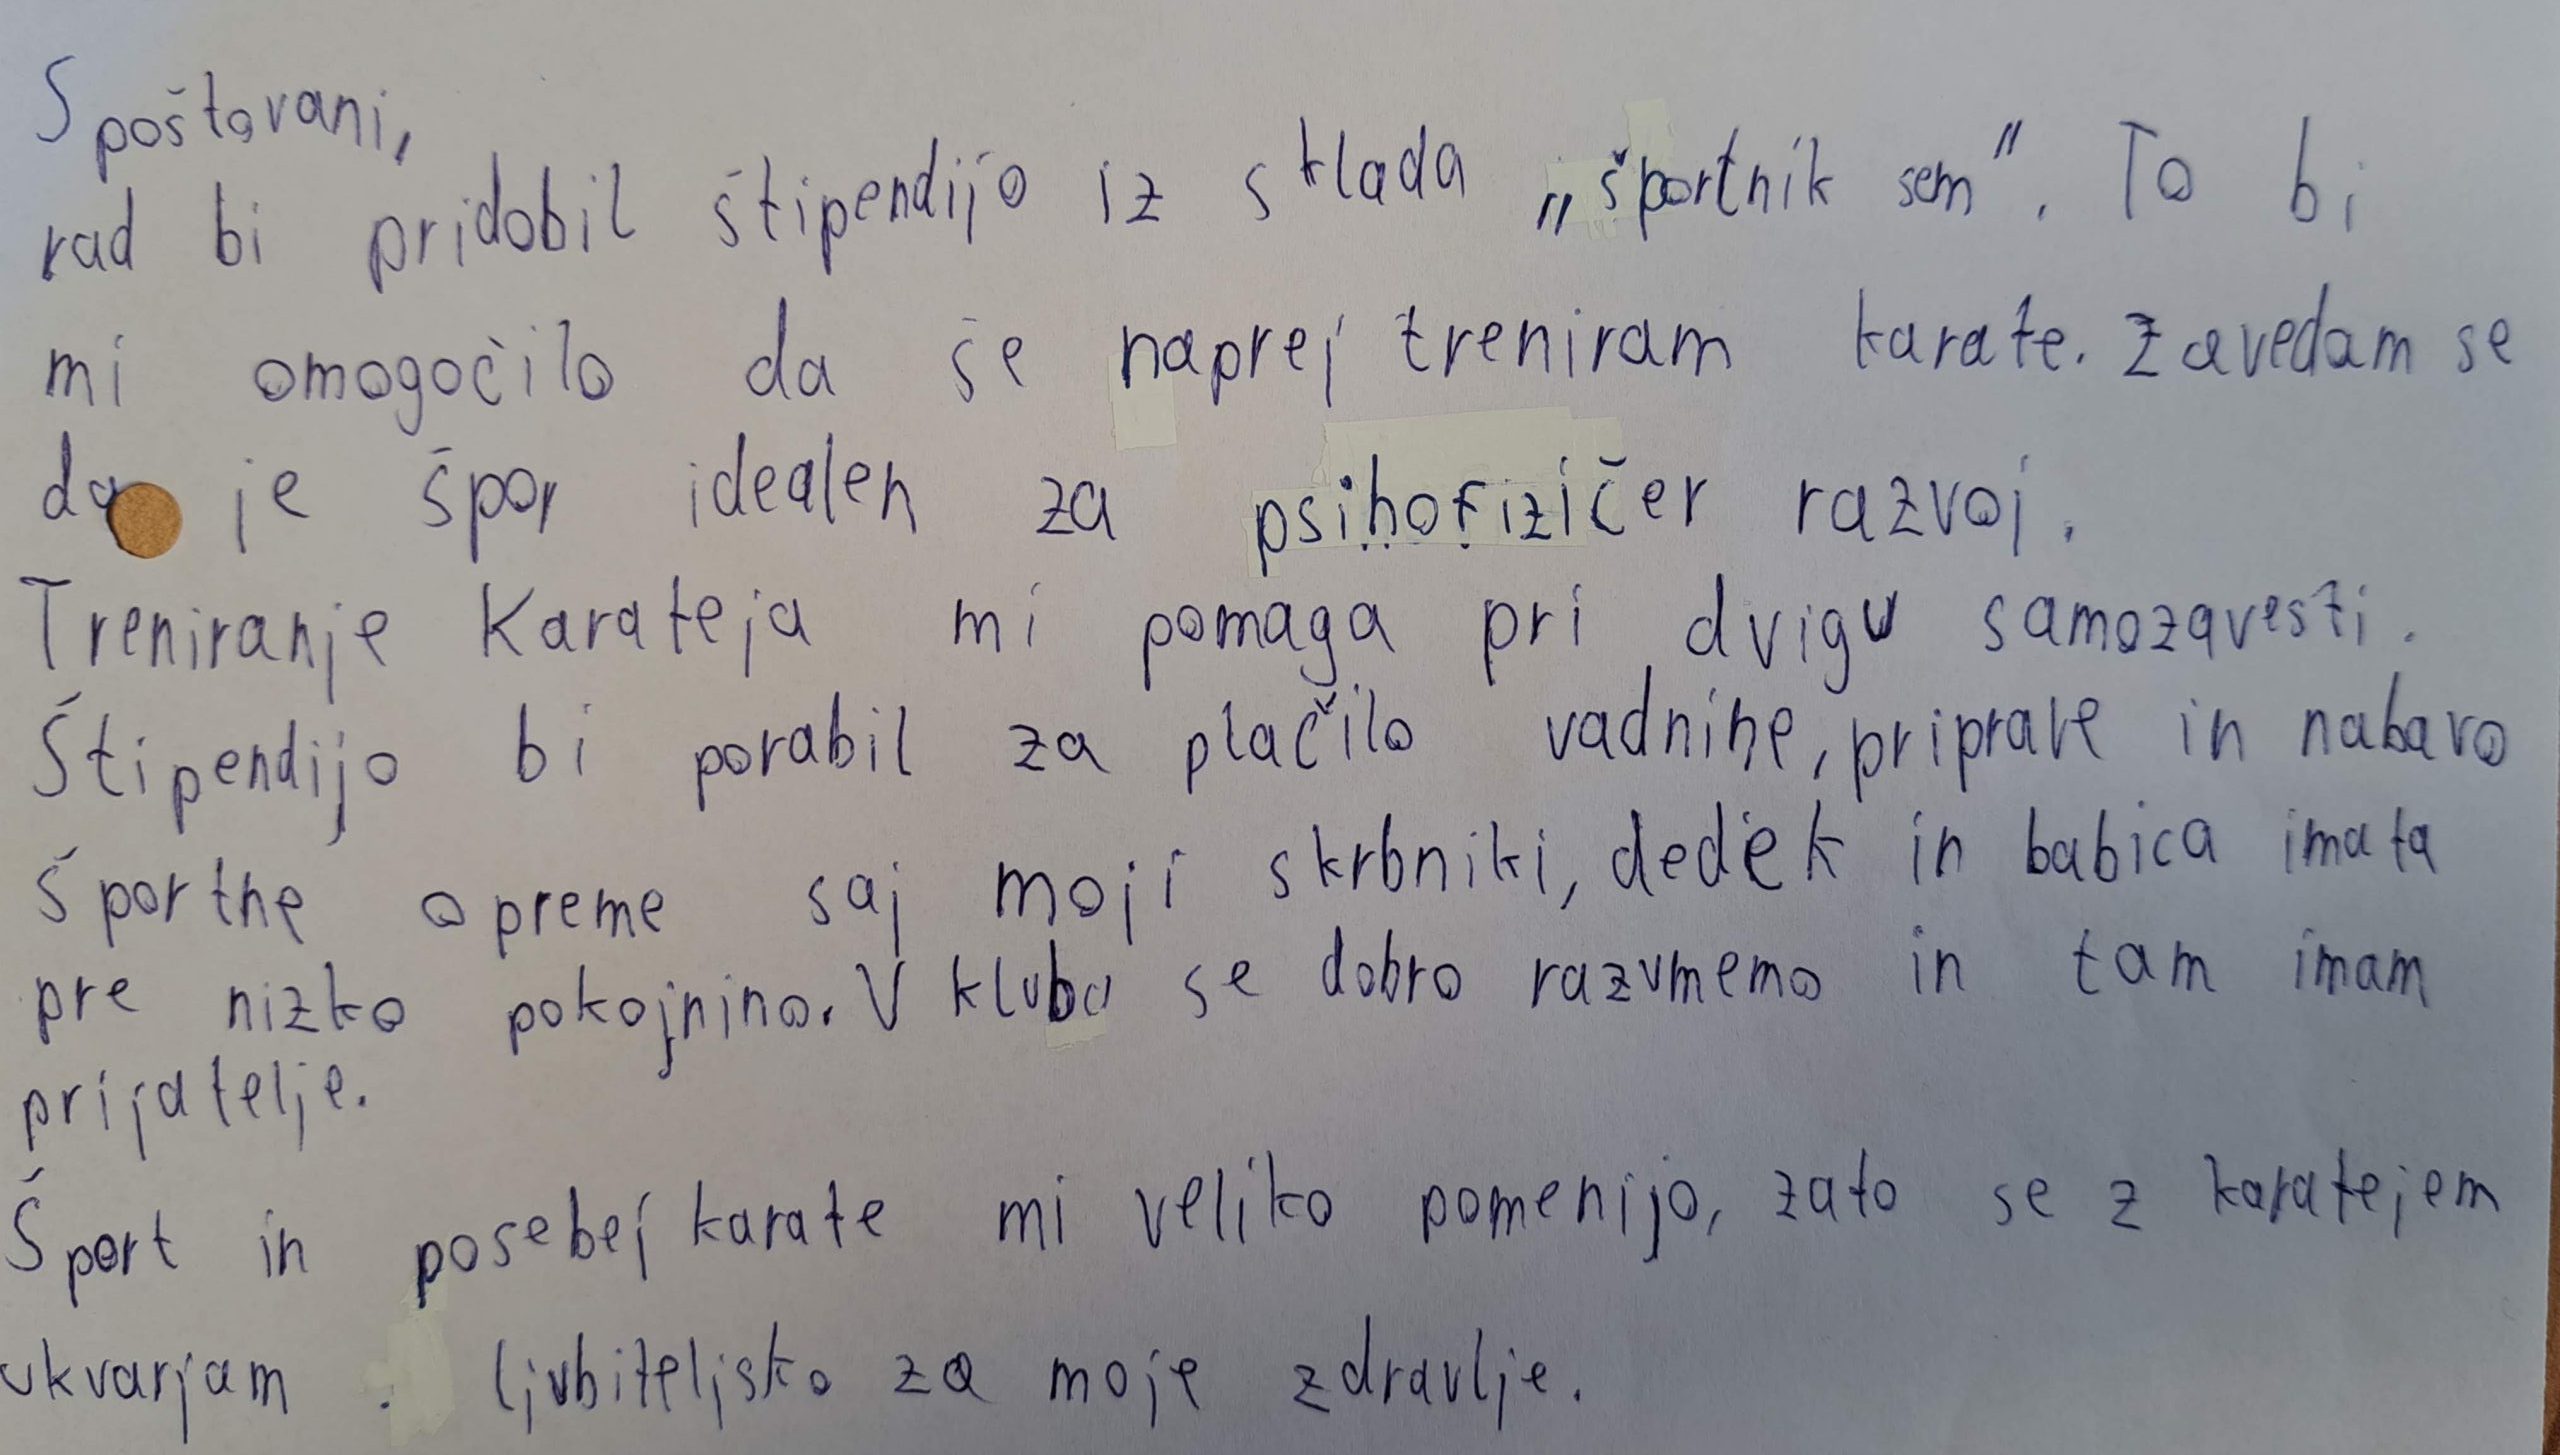 Spoštovani,
rad bi pridobil štipendijo iz sklada „športnik sem". To bi
mi omogočilo da še naprej treniram karate. Zavedam se
da je špor idealen za psihofizičer razvoj.
Treniranje Karateja mi pomaga pri dvigu samozavesti.
Štipendijo bi porabil za plačilo vadnine, priprave in nabavo
športne opreme saj moji skrbniki, dedek in babica imata
pre nizko pokojnino. V klubu se dobro razumemo in tam imam
prijatelje.
Šport in posebej karate mi veliko pomenijo, zato se z karatejem
ukvarjam ljubiteljsko za moje zdravlje.